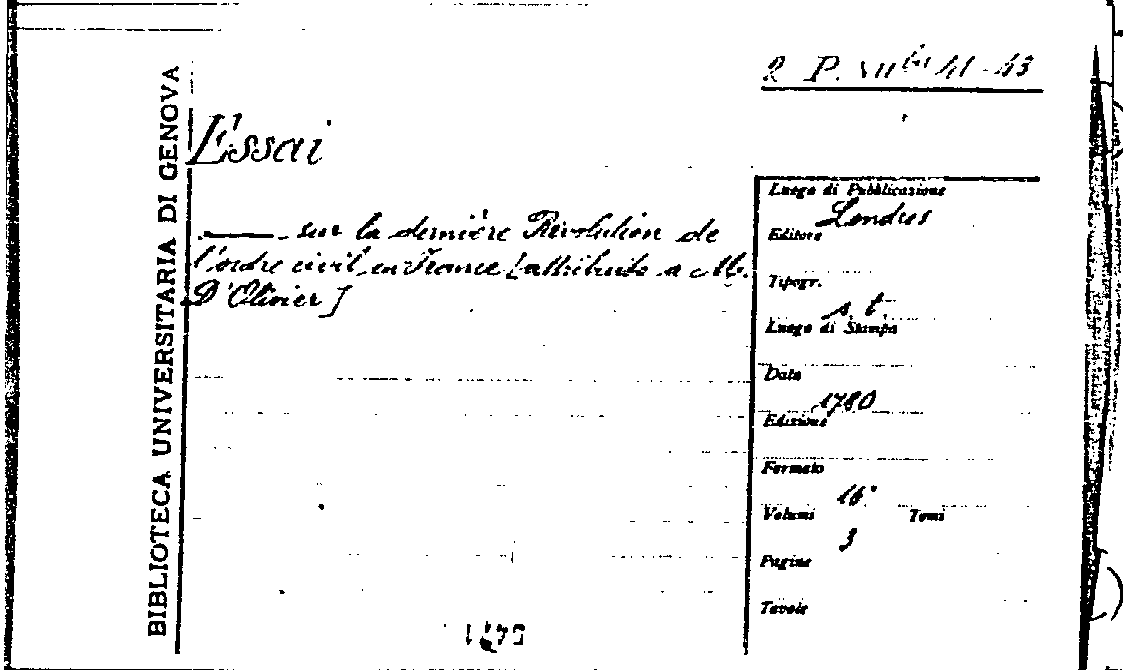 BIBLIOTECA UNIVERSITARIA DI GENOVA
2 P. VIII bis 41-43
Essai
——— sur la dernière Révolution de
l'ordre civil en France [attribuito a M.
D'Olivier]
Luogo di Pubblicazione
Londres
Editore
Tipogr.
s. t.
Luogo di Stampa
Data
1780
Edizione
Formato
16°
Volumi Tomi
3
Pagine
Tavole